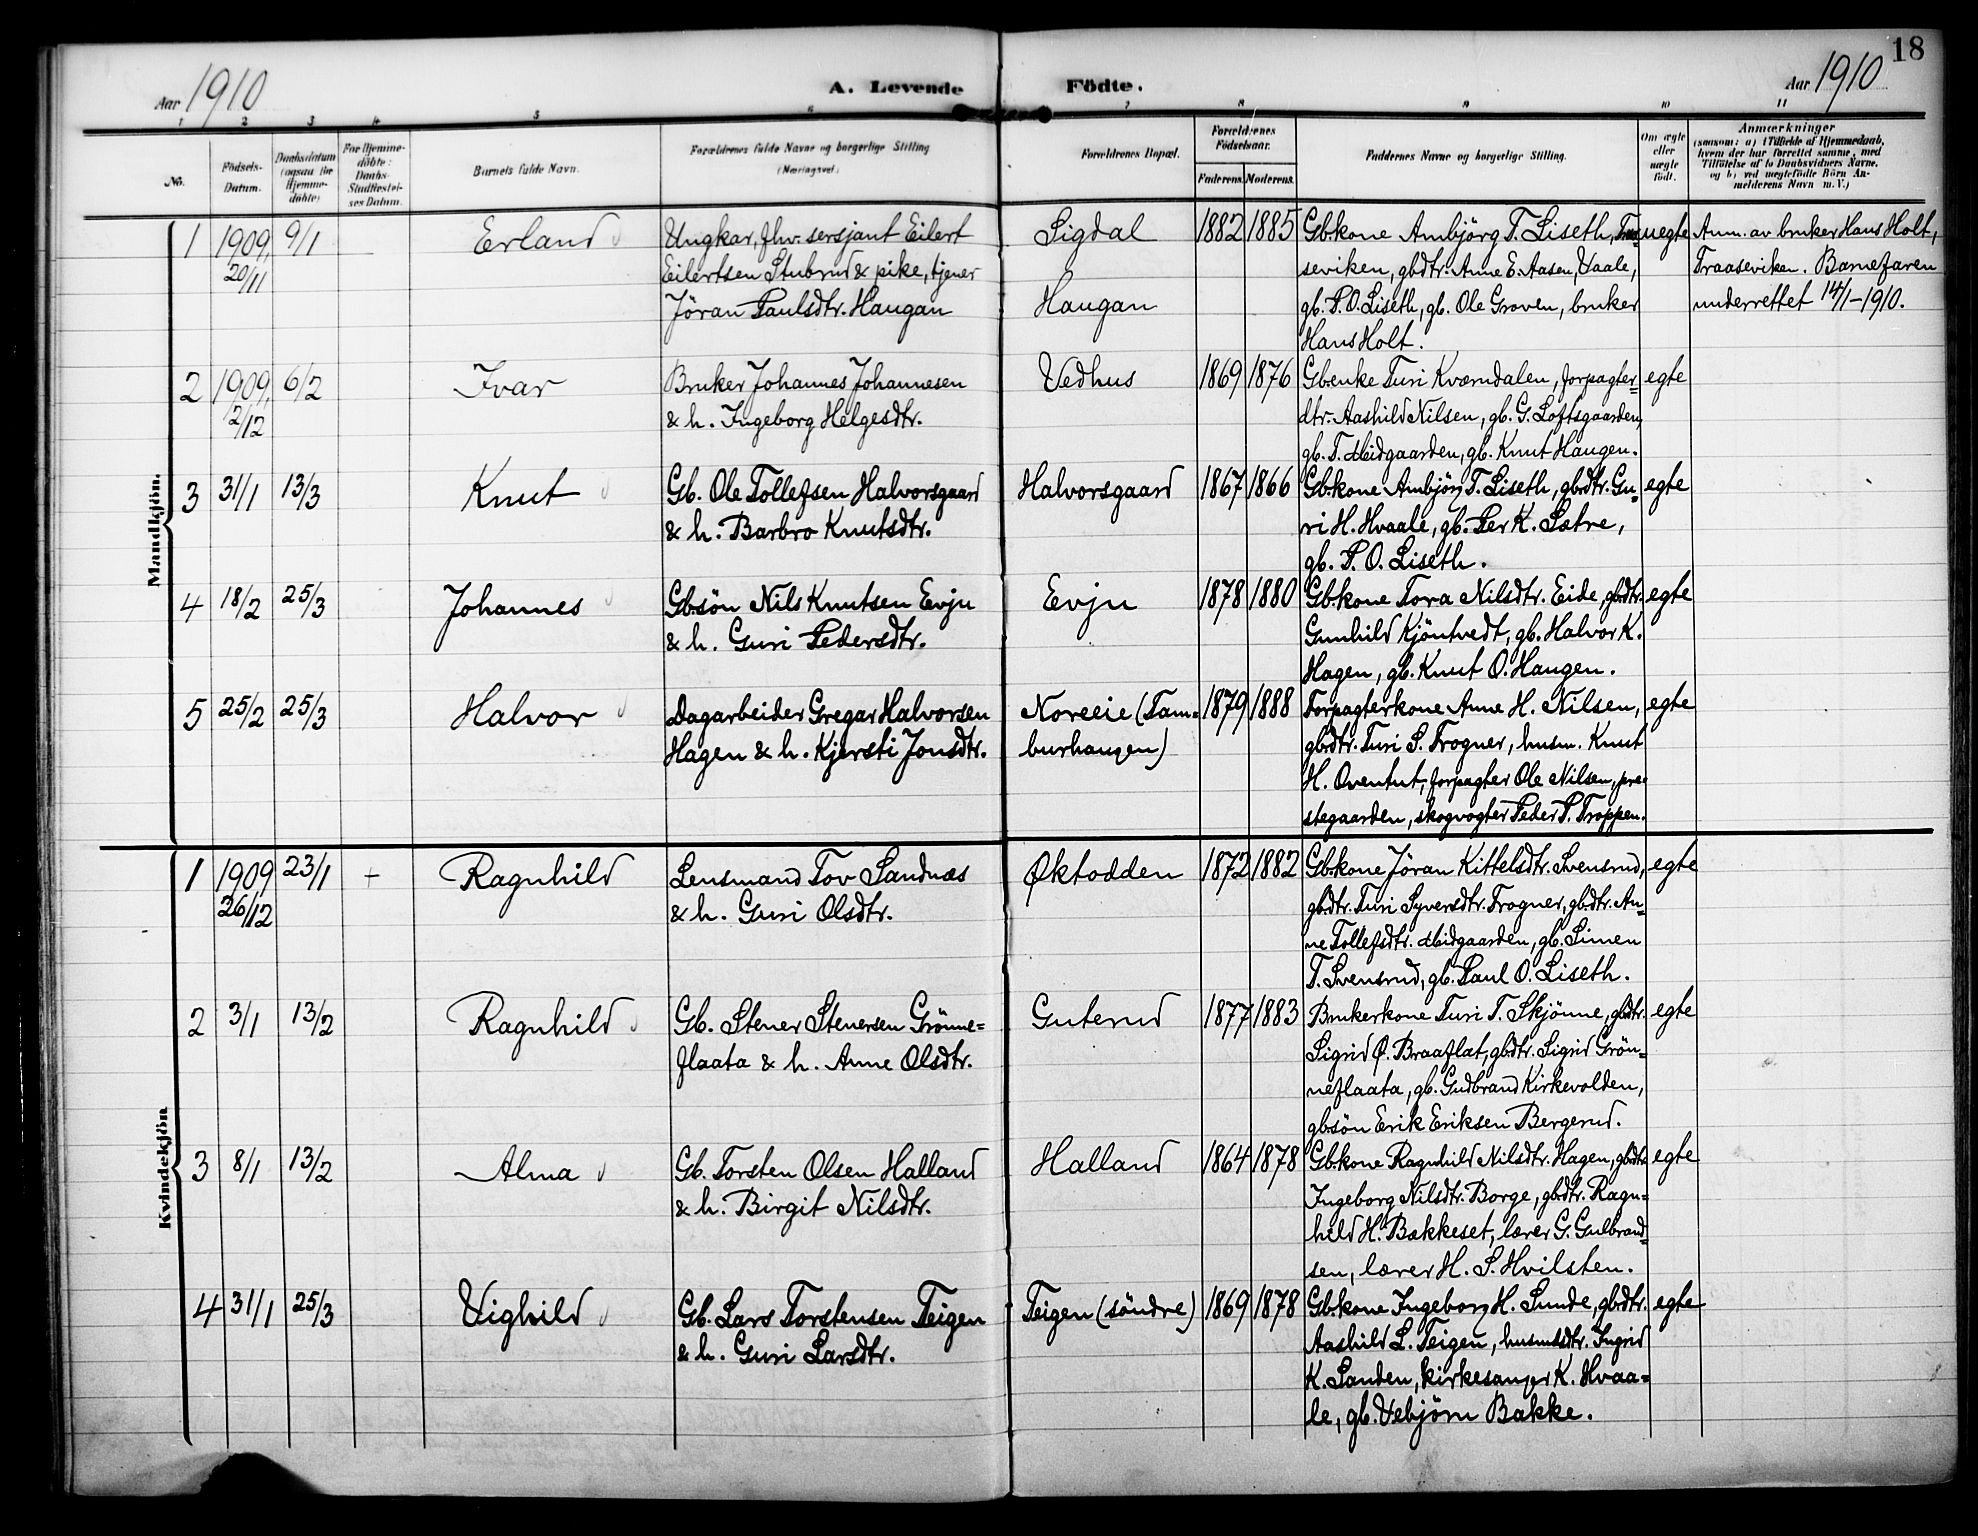 18
Aar 1910
A. Levende Födte.
Aar 1910
1 2 3 4 5 6 7 8 9 10 11
No.
Födsels-
Datum.
Daabsdatum
(ogsaa for
Hjemme-
døbte)
For Hjemme-
døbte:
Daabs-
Stadfæstel-
ses Datum.
Barnets fulde Navn.
Forældrenes fulde Navne og borgerlige Stilling
(Næringsvei)
Forældrenes Bopæl.
Forældrenes
Födselsaar.
Faderens. Moderens.
Faddernes Navne og borgerlige Stilling.
Om ægte
eller
uægte
födt.
Anmærkninger
(saasom: a) i Tilfælde af Hjemmedaab,
hvem der har forrettet samme, med
Tilføielse af to Daabsvidners Navne,
og b) ved uægtefödte Börn An-
melderens Navn m. V.)
Mandkjön.
1 1909, 20/11 9/1 Erland
Ungkar, fhv. sersjant Eilert
Eilertsen Stubrud & pike, tjener
Jöran Paulsdtr. Haugan
Sigdal
Haugan
1882 1885
Gb.kone Ambjörg T. Liseth, Traa-
seviken, gbdtr. Anne E. Aasen, Vaale,
gb. P. O. Liseth, gb. Ole Groven, bruker
Hans Holt.
uegte
Anm. av bruker Hans Holt,
Traaseviken. Barnefaren
underrettet 14/1-1910.
2 1909, 2/12 6/2 Ivar
Bruker Johannes Johannesen
& h. Ingeborg Helgesdtr.
Vedhus
1869 1876
Gb.enke Turi Kværndalen, forpagter-
dtr. Aashild Nilsen, gb. G. Loftsgaarden,
gb. T. Midgaarden, gb. Knut Haugen.
egte
3 31/1 13/3 Knut
Gb. Ole Tollefsen Halvorsgaard
& h. Barbro Knutsdtr.
Halvorsgaard
1867 1866
Gb.kone Ambjörg T. Liseth, gbdtr. Gu-
ri H. Hvaale, gb. Per K. Sætre,
gb. P. O. Liseth.
egte
4 18/2 25/3 Johannes
Gb.sön Nils Knutsen Evju
& h. Guri Pedersdtr.
Evju
1878 1880
Gb.kone Tora Nilsdtr. Eide, gbdtr.
Gunhild Kjöntvedt, gb. Halvor K.
Hagen, gb. Knut O. Haugen.
egte
5 25/2 25/3 Halvor
Dagarbeider Gregar Halvorsen
Hagen & h. Kjersti Jonsdtr.
Noreeie (Tam-
burhaugen)
1879 1888
Forpagterkone Anne H. Nilsen,
gbdtr. Turi S. Frogner, husm. Knut
H. Oventut, forpagter Ole Nilsen, pre-
stegaarden, skogvogter Peder P. Troppen.
egte
Kvindekjön
1 1909 26/12 23/1 + Ragnhild
Lensmand Tov Sandnæs
& h. Guri Olsdtr.
Øktodden
1872 1882
Gb.kone Jöran Kittelsdtr. Svensrud,
gbdtr. Turi Syversdtr. Frogner, gbdtr. An-
ne Tollefsdtr. Midgaarden, gb. Simen
T. Svensrud, gb. Paul O. Liseth.
egte
2 3/1 13/2 Ragnhild
Gb. Stener Stenersen Grönne-
flaata & h. Anne Olsdtr.
Guterud
1877 1883
Brukerkone Turi T. Skjönne, gbdtr.
Sigrid Ø. Braaflat, gbdtr. Sigrid Grön-
neflaata, gb. Gudbrand Kirkevolden,
gbsön Erik Eriksen Bergerud.
egte
3 8/1 13/2 Alma
Gb. Torsten Olsen Halland
& h. Birgit Nilsdtr.
Halland
1864 1878
Gb.kone Ragnhild Nilsdtr. Hagen, gbdtr.
Ingeborg Nilsdtr. Borge, gbdtr. Ragn-
hild H. Bakkeset, lærer G. Gulbrand-
sen, lærer H. S. Hvilsten.
egte
4 31/1 25/3 Vighild
Gb. Lars Torstensen Teigen
& h. Guri Larsdtr.
Teigen (söndre)
1869 1878
Gb.kone Ingeborg H. Lunde, gbdtr.
Aashild L. Teigen, husmsdtr. Ingrid
K. Sanden, kirkesanger K. Hvaa-
le, gb. Vebjörn Bakke.
egte